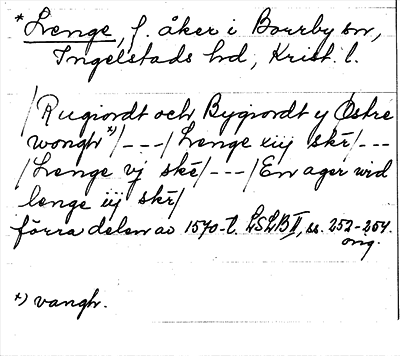 *Lenge, f. åker i Borrby sn,
Ingelstads hd, Krist. l.
/Rugiordt och Bygiordt y Østre
wongh*)/---/Lenge xiij skr/---
/Lenge vj skr/---/En ager wid
lenge iij skr/
förra delen av 1570-t. LSLB II, ss. 252-254.
orig.
*) vangh.